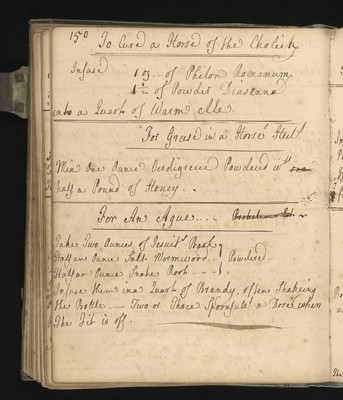 150
To Cure a Horse of the Cholick
Infuse
1 oz .. of Philon Romanum
1 1/2 of Powder Diasenna
into a Quart of Warm Ale.
For Grease in a Horse Heels
Mix One Ounce Verdigreece Powdered wth
half a Pound of Honey..
For An Ague ....
Take Two Ounces of Jesuits Bark
Half an Ounce Salt Wormwood .. Powdered
Half an Ounce Snake Root ...
Infuse them in a Quart of Brandy, often Shakeing
the Bottle — Two or Three Spoonfuls a Dose, when
The Fit is off.